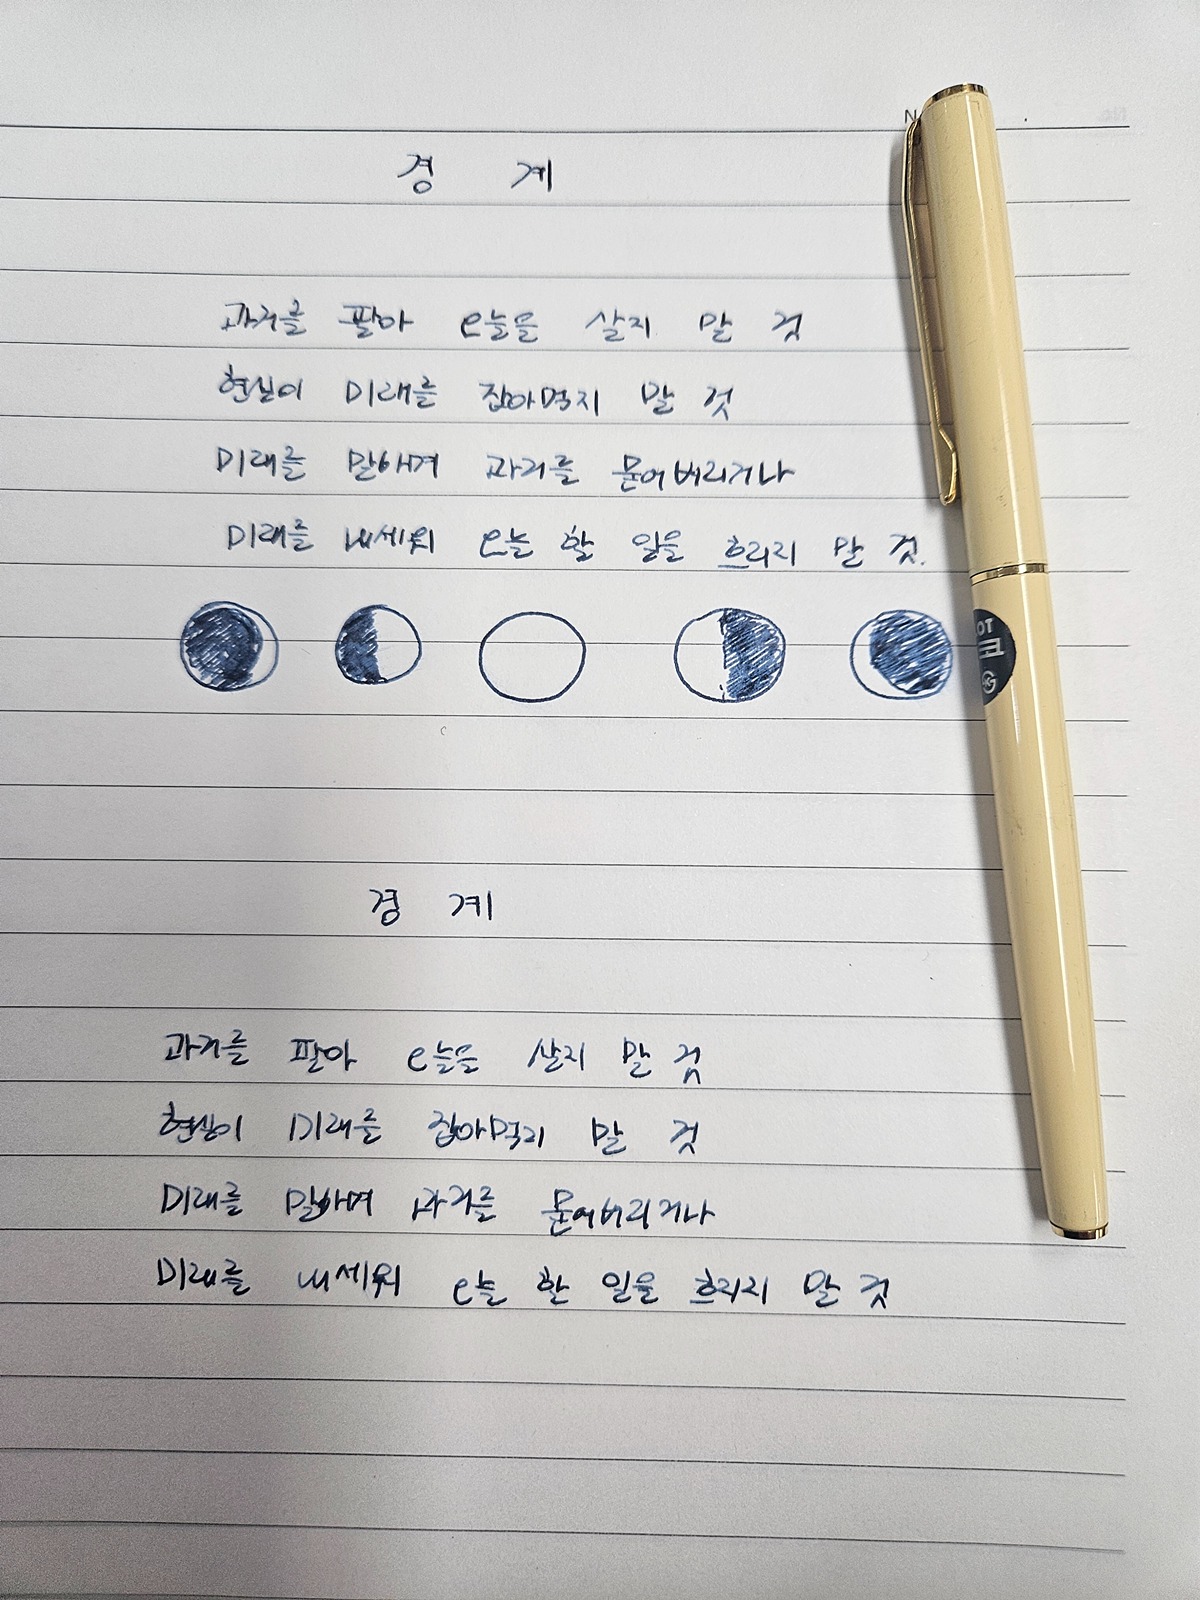 경 계
과거를 팔아 오늘을 살지 말 것
현실이 미래를 잡아먹지 말 것
미래를 말하며 과거를 묻어버리거나
미래를 내세워 오늘 할 일을 흐리지 말 것.
경 계
과거를 팔아 오늘을 살지 말 것
현실이 미래를 잡아먹지 말 것
미래를 말하며 과거를 묻어버리거나
미래를 내세워 오늘 할 일을 흐리지 말 것